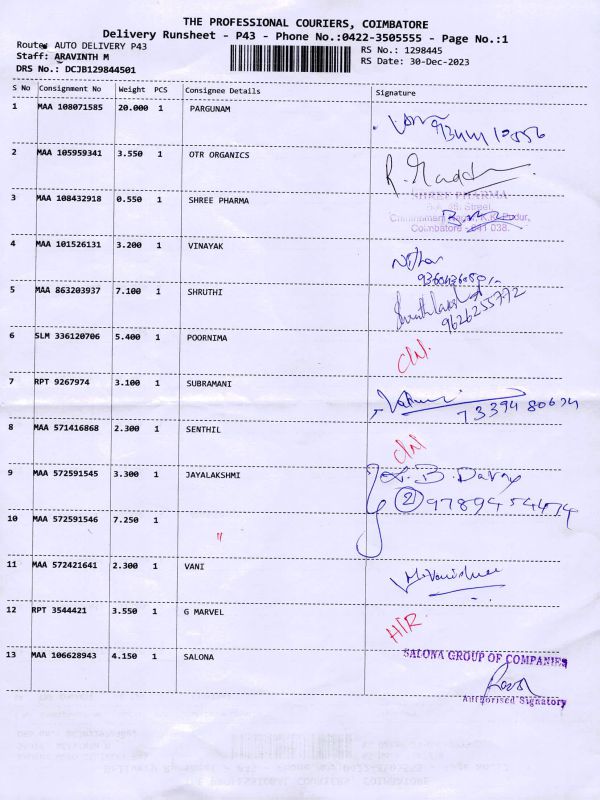 THE PROFESSIONAL COURIERS, COIMBATORE
Delivery Runsheet - P43 - Phone No.:0422-3505555 - Page No.:1
Route: AUTO DELIVERY P43 RS No.: 1298445
Staff: ARAVINTH M RS Date: 30-Dec-2023
DRS No.: DCJB129844501
S No Consignment No Weight PCS Consignee Details Signature
1 MAA 108071585 20.000 1 PARGUNAM
2 MAA 105959341 3.550 1 OTR ORGANICS
SHREE PHARMA
3 MAA 108432918 0.550 1 SHREE PHARMA
Coimbatore - 641 038.
4 MAA 101526131 3.200 1 VINAYAK
5 MAA 863203937 7.100 1 SHRUTHI
9626255772
6 SLM 336120706 5.400 1 POORNIMA
7 RPT 9267974 3.100 1 SUBRAMANI
7339480634
8 MAA 571416868 2.300 1 SENTHIL
9 MAA 572591545 3.300 1 JAYALAKSHMI
2 9789454474
10 MAA 572591546 7.250 1 "
11 MAA 572421641 2.300 1 VANI
12 RPT 3544421 3.550 1 G MARVEL
13 MAA 106628943 4.150 1 SALONA SALONA GROUP OF COMPANIES
Authorised Signatory